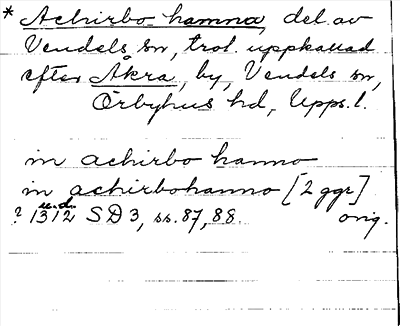 * Achirbo hamna, del av
Vendels sn, trol. uppkallad
efter Åkra, by, Vendels sn,
Örbyhus hd, Upps. l.
in achirbo hanno
in achirbohanno [2 ggr]
u.d.
? 1312 SD 3, ss. 87, 88. orig.